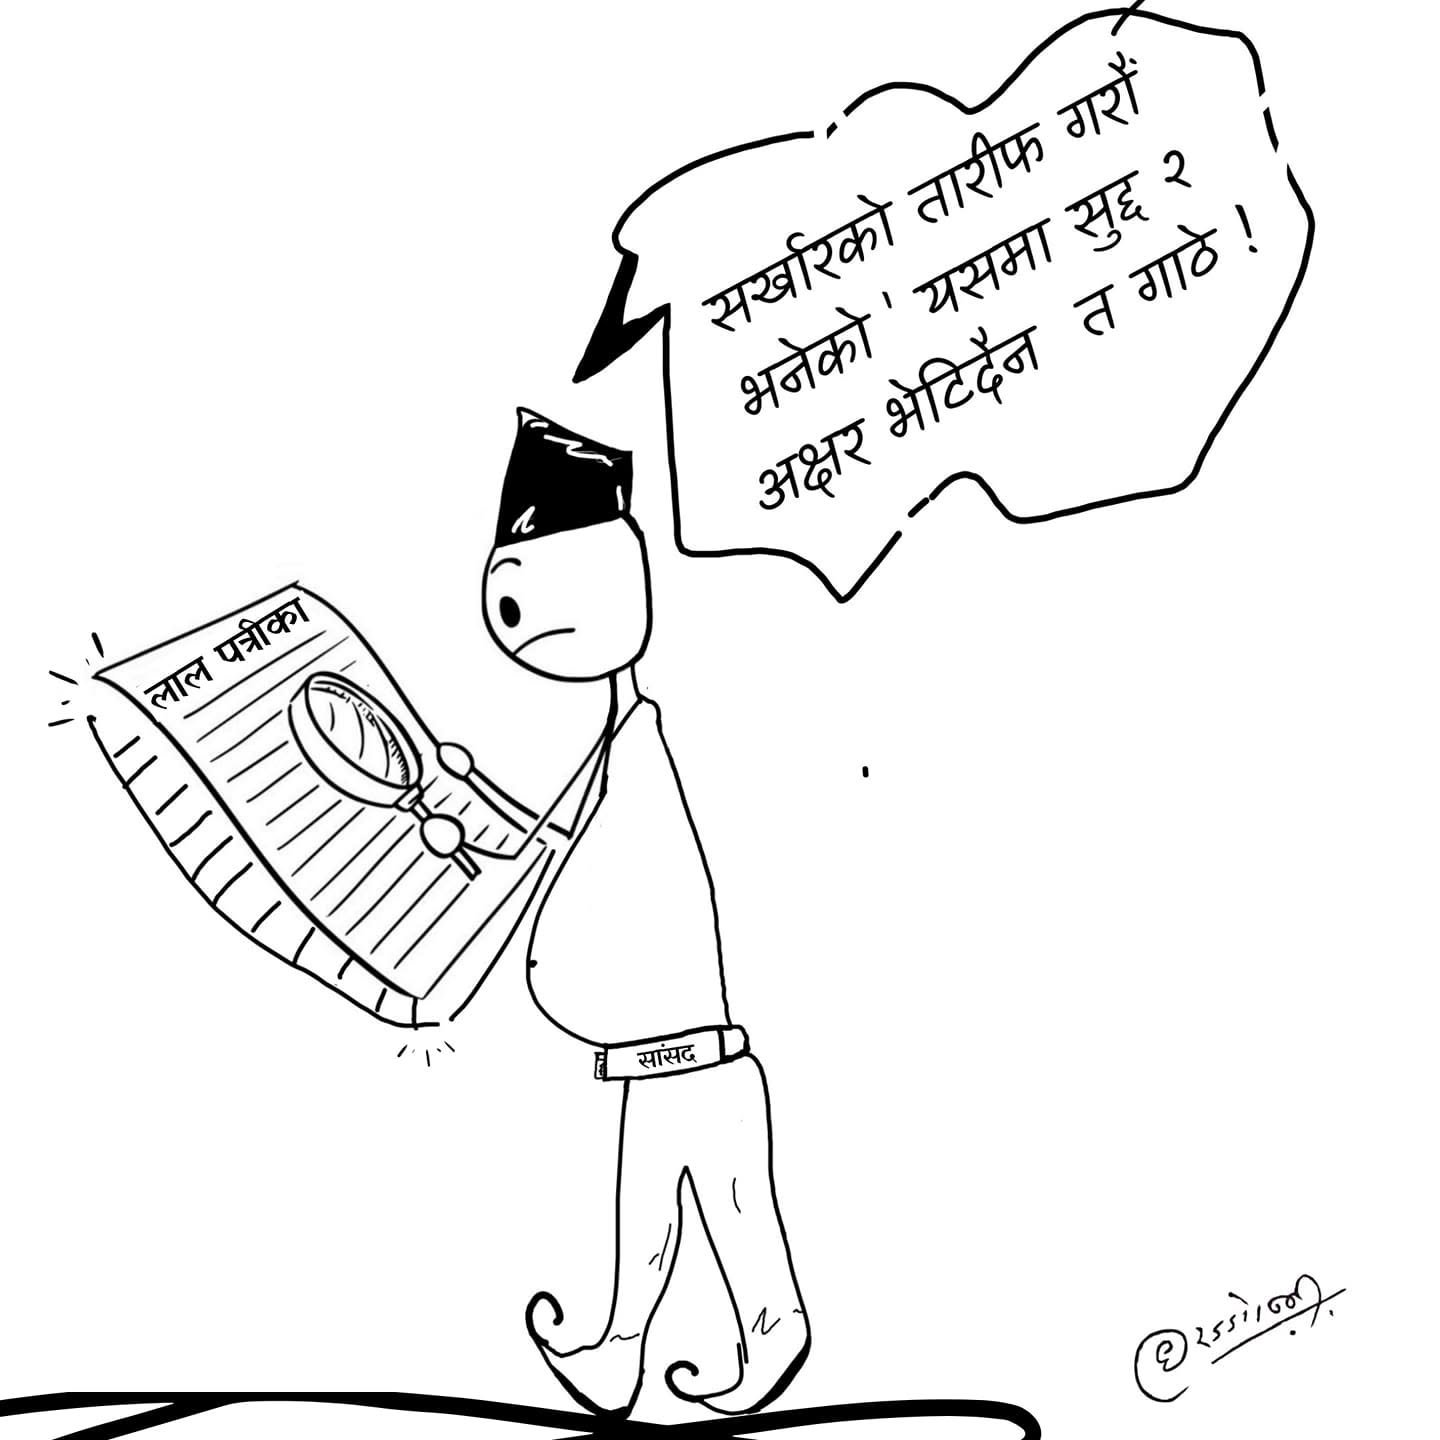 सर्खारको तारीफ गरौं
भनेको ' यसमा सुद्द २
अक्षर भेटिदैन त गाठे !
लाल पत्रीका
सांसद